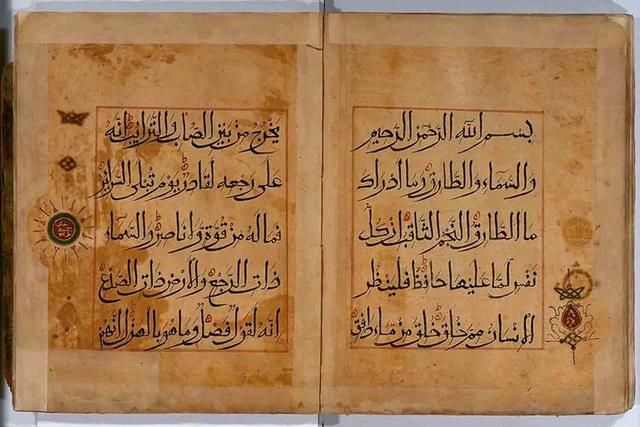 بسم الله الرحمن الرحيم
والسماء والطارق وما أدراك
ما الطارق النجم الثاقب إن كل
نفس لما عليها حافظ فلينظر
الإنسان مم خلق خلق من ماء دافق
يخرج من بين الصلب والترائب إنه
على رجعه لقادر يوم تبلى السرائر
فما له من قوة ولا ناصر والسماء
ذات الرجع والأرض ذات الصدع
إنه لقول فصل وما هو بالهزل إنهم